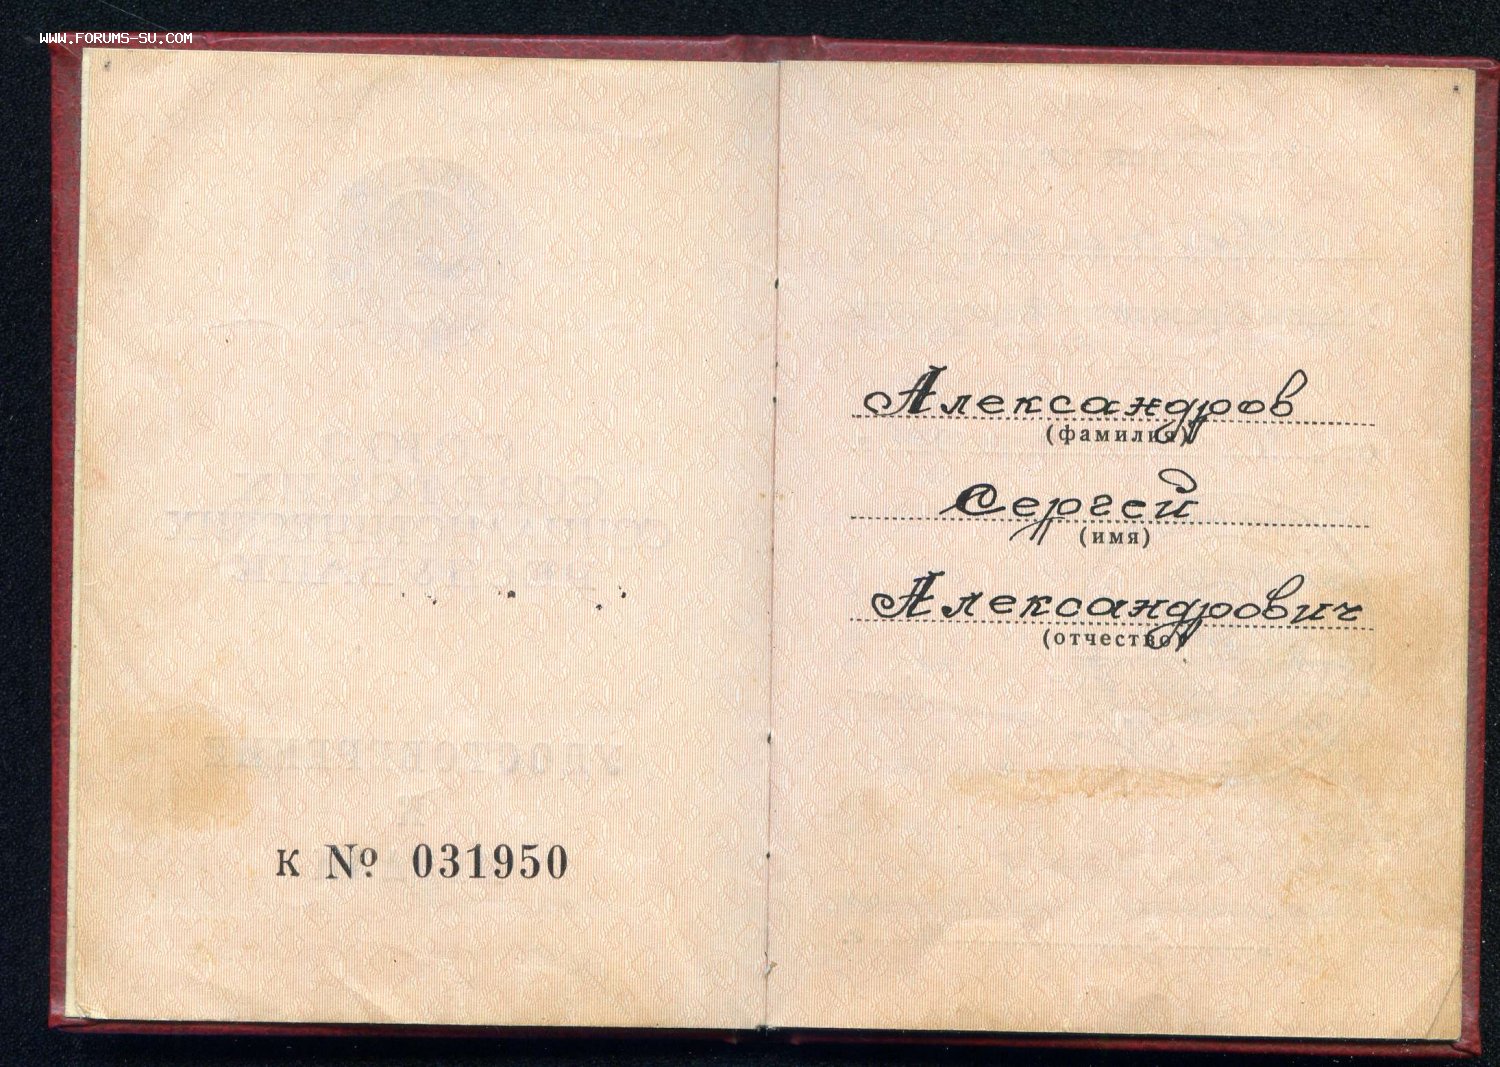 WWW.FORUMS-SU.COM
К № 031950
Александров
(фамилия)
Сергей
(имя)
Александрович
(отчество)